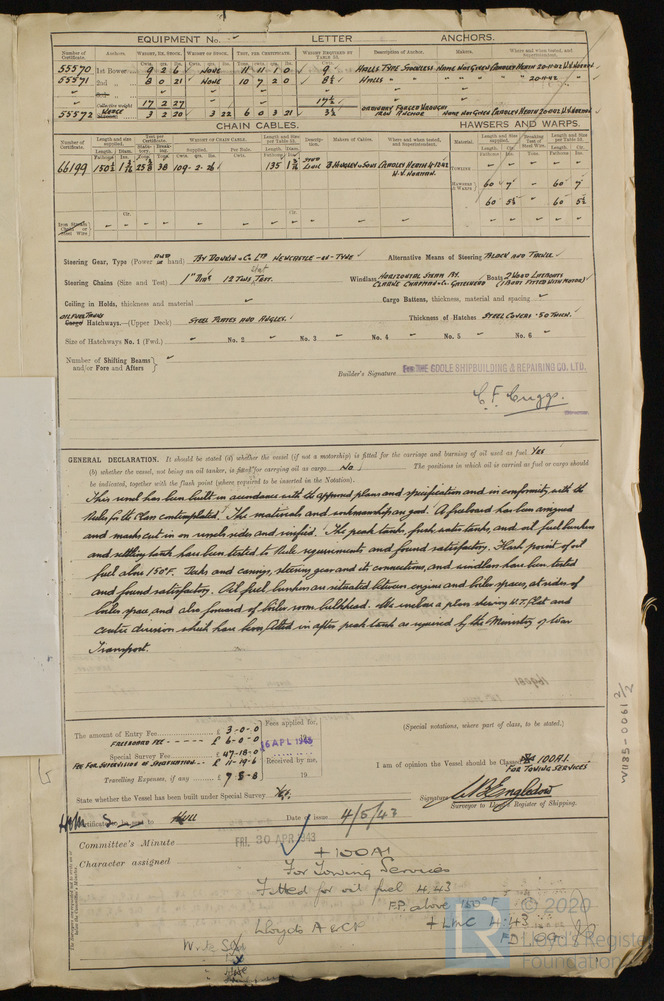 EQUIPMENT No. LETTER ANCHORS.
Number of Certificate. Anchors. WEIGHT, EX. STOCK. WEIGHT OF STOCK. TEST, PER CERTIFICATE. WEIGHT REQUIRED BY TABLE 53. Description of Anchor. Makers. Where and when tested, and Superintendent.
55570 1st Bower 9 2 6 NONE 11 11 1 0 9 HALLS TYPE STOCKLESS
55571 2nd 8 0 21 NONE 10 7 2 0 8½ HALLS " " " " " 20-11-42
Collective weight 17 2 27 17½
55572 3 2 20 3 22 6 0 3 21 3½ IRON ANCHOR
CHAIN CABLES. HAWSERS AND WARPS.
Number of Certificate. Length and size supplied. Test per Certificate. WEIGHT OF CHAIN CABLE. Length and Size per Table 53. Description. Makers of Cables. Where and when tested, and Superintendent. Material. Length and Size Supplied. Breaking Test of Steel Wire. Length and Size per Table 53.
66199 150½ 38 109-2-21 135 STUD LINK
TOWLINE
HAWSERS & WARPS 60 7 60 7
60 5½ 60 5½
Iron Stream Chain or Steel Wire
Steering Gear, Type (Power AND hand) BY DONKIN & Co LTD NEWCASTLE-ON-TYNE Alternative Means of Steering BLOCK AND TACKLE
Steering Chains (Size and Test) 1" DIA 12 TONS TEST. Windlass HORIZONTAL STEAM BY CLARKE CHAPMAN & Co. GATESHEAD Boats 2 WOOD LIFEBOATS (1 BOAT FITTED WITH MOTOR)
Ceiling in Holds, thickness and material Cargo Battens, thickness, material and spacing
OIL FUEL TANKS
Cargo Hatchways.—(Upper Deck) STEEL PLATES AND ANGLES. Thickness of Hatches STEEL COVERS .50 THICK.
Size of Hatchways No. 1 (Fwd.) No. 2 No. 3 No. 4 No. 5 No. 6
Number of Shifting Beams and/or Fore and Afters
Builder's Signature For THE GOOLE SHIPBUILDING & REPAIRING CO. LTD.
GENERAL DECLARATION. It should be stated (a) whether the vessel (if not a motorship) is fitted for the carriage and burning of oil used as fuel YES
(b) whether the vessel, not being an oil tanker, is fitted for carrying oil as cargo No The positions in which oil is carried as fuel or cargo should
be indicated, together with the flash point (where required to be inserted in the Notation).
This vessel has been built in accordance with the approved plans and specification and in conformity with the
Rules for the Class contemplated. The materials and workmanship are good. A freeboard has been assigned
and marks cut in on vessels sides and verified. The peak tanks, fresh water tanks, and oil fuel bunkers
and settling tank have been tested to Rule requirements and found satisfactory. Flash point of oil
fuel above 150°F. Decks and casings, steering gear and its connections, and windlass have been tested
and found satisfactory. Oil fuel bunkers are situated between engine and boiler spaces, at sides of
boiler space, and also forward of boiler room bulkhead. We enclose a plan shewing W.T. Flat and
centre division which have been fitted in after peak tank as required by the Ministry of War
Transport.
The amount of Entry Fee £ 3-0-0 Fees applied for,
FREEBOARD FEE £ 6-0-0 16 APL 1943
Special Survey Fee £ 47-18-0
FEE FOR SUPERVISION OF £ 11-19-6 Received by me,
Travelling Expenses, if any £ 7 5 8 19
(Special notations, where part of class, to be stated.)
I am of opinion the Vessel should be Classed 100A1.
FOR TOWING SERVICES
State whether the Vessel has been built under Special Survey Yes.
Signature
Surveyor to Lloyd's Register of Shipping.
Certificate to be sent to HULL Date of issue 4/5/43
Committee's Minute FRI. 30 APR 1943
Character assigned +100A1
For Towing Services
Fitted for oil fuel 4.43
F.P. above 150°F
Lloyds A & CP +LMC 4.43
FD
W1185-0061 2/2
LR © 2020
Lloyd's Register
Foundation